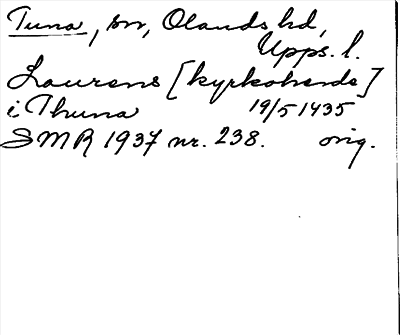 Tuna, sn, Olands hd,
Upps. l.
Laurens [kyrkoherde]
i Thuna 19/5 1435
SMR 1937 nr. 238. orig.